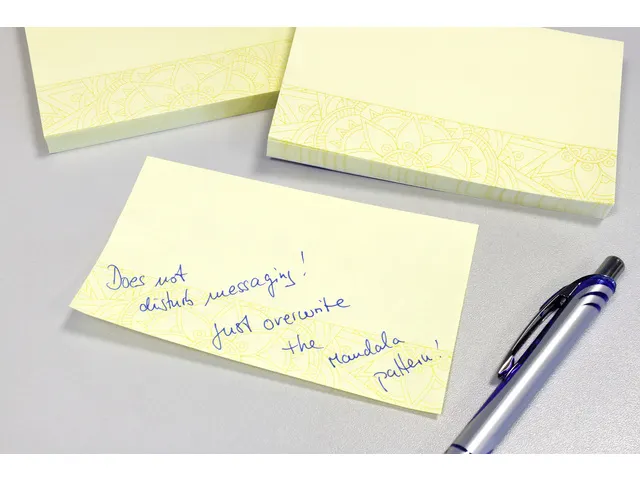 Does not
disturb messaging!
Just overwrite
the Mandala
pattern!